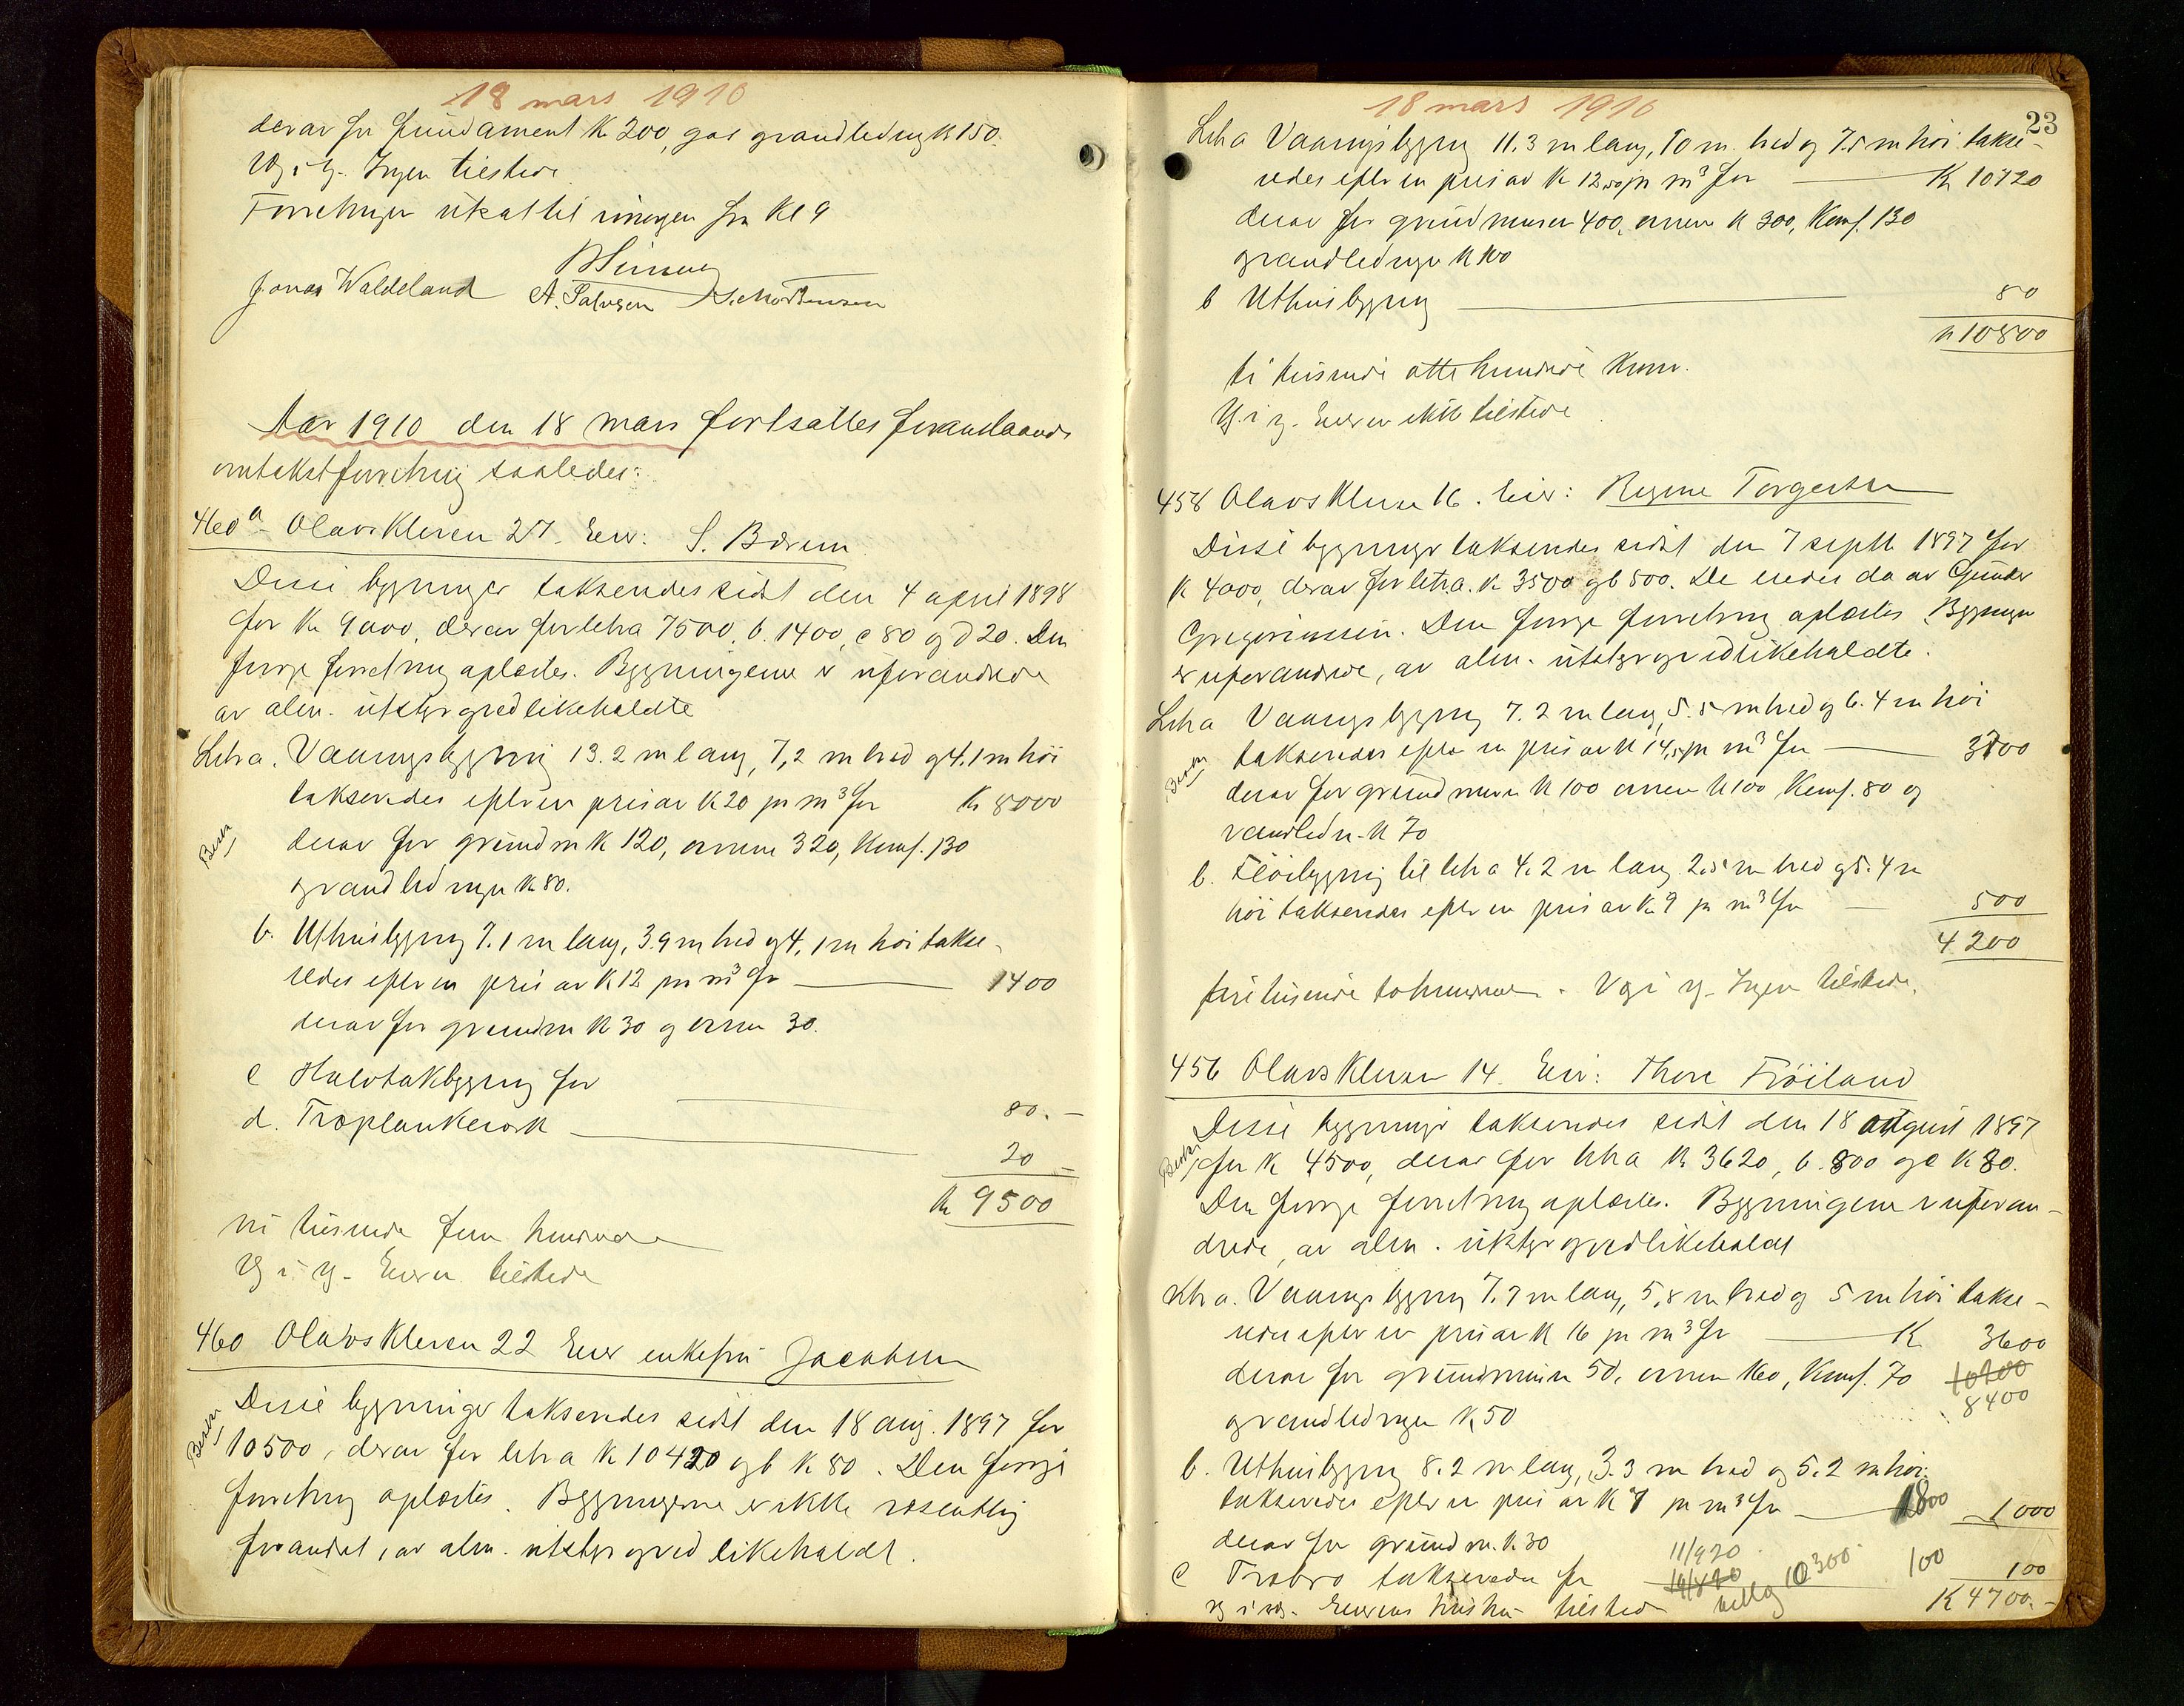 18 mars 1910
derav for fundament K 200, gas og vandledning K 150.
Vg i g. Ingen tilstede
Forretningen utsat til imorgen fra Kl 9
Jonas Waldeland A. Salvesen S. Mortensen
Aar 1910 den 18 mars fortsattes foranstaaende
omtakstforretning saaledes:
460a Olavskleven 27. Eier: S. Bærem
Disse bygninger takseredes sidst den 4 april 1898
for Kr 9000, derav for litra 7500, b. 1400, c 80 og d 20. Den
forrige forretning oplæstes. Bygningerne er uforandrede
av alm. utstyr og vedlikeholdte
Litra a. Vaaningsbygning 13.2 m lang, 7,2 m bred og 4.1 m høi
takseredes efter en pris av K 20 pr m³ for Kr 8000
derav for grundm K 120, ovnene 320, Komf. 130
og vandledningen K 80.
b. Uthusbygning 7.1 m lang, 3.9 m bred og 4,1 m høi takse-
redes efter en pris av K 12 pr m³ for 1400
derav for grundm K 30 og ovnen 30.
c Halvtakbygning for 80.-
d. Træplankeverk 20 -
Kr 9500
ni tusinde fem hundrede
Vg i g. Eieren tilstede
460 Olavskleven 22 Eier enkefru Jacobsen
Disse bygninger takseredes sidst den 18 aug. 1897 for
10500, derav for litra a K 10420 og b K 80. Den forrige
forretning oplæstes. Bygningerne er ikke væsentlig
forandret, av alm. utstyr og vedlikeholdt.
18 mars 1910
23
Litra Vaaningsbygning 11.3 m lang, 10 m bred og 7.5 m høi takse-
redes efter en pris av K 12,50 pr m³ for K 10720
derav for grundmuren 400, ovnene K 300, Komf. 130
og vandledningen K 100
b Uthusbygning 80
K 10800
ti tusinde otte hundrede Kroner.
Vg. i g. Eieren ikke tilstede
458 Olavskleven 16. Eier: Regine Torgersen
Disse bygninger takseredes sidst den 7 septb 1897 for
K 4000, derav for litra a. K 3500 og b 500. De eiedes da av Gunder
Gregoriussen. Den forrige forretning oplæstes. Bygningen
er uforandrede, av alm. utstyr og vedlikeholdte.
Litra Vaaningsbygning 7.2 m lang, 5.5 m bred og 6.4 m høi
takseredes efter en pris av K 14,5 pr m³ for 3700
derav for grundmuren K 100 ovnene K 100, Komf. 80 og
vandledn. K 70
b. Fløibygning til litra a 4.2 m lang 2.5 m bred og 5.4 m
høi takseredes efter en pris av K 9 pr m³ for 500
4200
fire tusinde to hundrede. Vg i g. Ingen tilstede.
456 Olavskleven 14. Eier: Thore Frøiland
Disse bygninger takseredes sidst den 18 august 1897
for K 4500, derav for litra a K 3620, b. 800 og c K 80.
Den forrige forretning oplæstes. Bygningerne er uforan-
drede, av alm. utstyr og vedlikeholdt
Litra a. Vaaningsbygning 7.7 m lang, 5,8 m bred og 5 m høi takse-
redes efter en pris av K 16 pr m³ for K 3600
derav for grundmuren 50, ovnen 160, Komf. 70 10700
og vandledningen K 50 8400
b. Uthusbygning 8.2 m lang, 3.3 m bred og 5.2 m høi
takseredes efter en pris av K 7 pr m³ for 1800 1000
derav for grundm. K 30 11/920
c Træbro takseredes for 10300 100 100
Vg i g. Eierens hustru tilstede K 4700.-